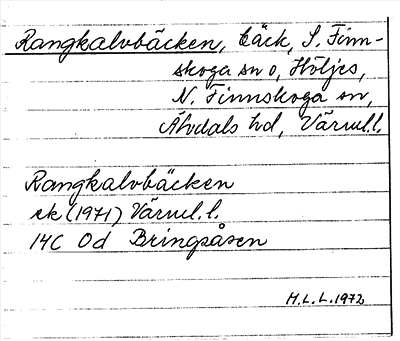 Rangkalvbäcken, bäck, S. Finn-
skoga sn o, Höljes,
N. Finnskoga sn,
Älvdals hd, Värml.l.
Rangkalvbäcken
ek (1971) Värml. l.
14C 0d Bringsåsen
H.L.L. 1972